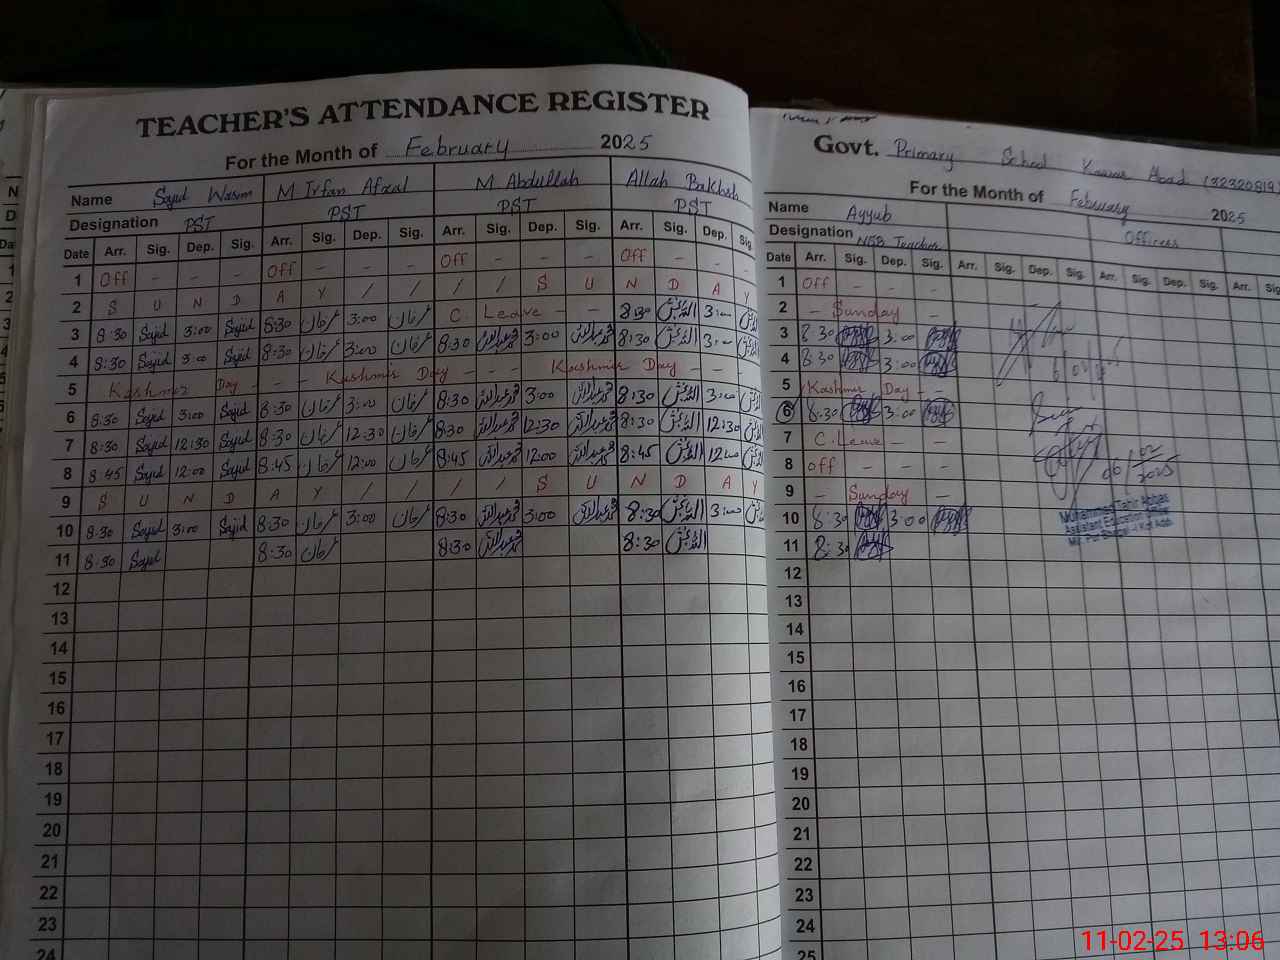 TEACHER'S ATTENDANCE REGISTER
For the Month of February 2025
Name Sajid Wasim M Irfan Afzal M Abdullah Allah Bakhsh
Designation PST PST PST PST
Date Arr. Sig. Dep. Sig. Arr. Sig. Dep. Sig. Arr. Sig. Dep. Sig. Arr. Sig. Dep. Sig.
1 Off - - - Off - - - Off - - - Off - - -
2 S U N D A Y / / / / S U N D A Y
3 8:30 Sajid 3:00 Sajid 8:30 عرفان 3:00 عرفان C. Leave - - 8:30 3:00
4 8:30 Sajid 3:00 Sajid 8:30 عرفان 3:00 عرفان 8:30 3:00 8:30 3:00
5 Kashmir Day - - - Kashmir Day - - - Kashmir Day - - -
6 8:30 Sajid 3:00 Sajid 8:30 عرفان 3:00 عرفان 8:30 3:00 8:30 3:00
7 8:30 Sajid 12:30 Sajid 8:30 عرفان 12:30 عرفان 8:30 12:30 8:30 12:30
8 8:45 Sajid 12:00 Sajid 8:45 عرفان 12:00 عرفان 8:45 12:00 8:45 12:00
9 S U N D A Y / / / / S U N D A Y
10 8:30 Sajid 3:00 Sajid 8:30 عرفان 3:00 عرفان 8:30 3:00 8:30 3:00
11 8:30 Sajid 8:30 عرفان 8:30 8:30
12
13
14
15
16
17
18
19
20
21
22
23
24
Govt. Primary School Abad
For the Month of February 2025
Name Ayyub Officers
Designation NSB Teacher
Date Arr. Sig. Dep. Sig. Arr. Sig. Dep. Sig. Arr. Sig. Dep. Sig. Arr. Sig.
1 Off - - -
2 - Sunday -
3 8:30 3:00
4 8:30 3:00
5 Kashmir Day - -
6 8:30 3:00
7 C. Leave - -
8 off - - -
06/02/2025
9 - Sunday -
10 8:30 3:00
Muhammad Tahir Abbas
Assistant Education Officer
11 8:30
12
13
14
15
16
17
18
19
20
21
22
23
24
25
11-02-25 13:06